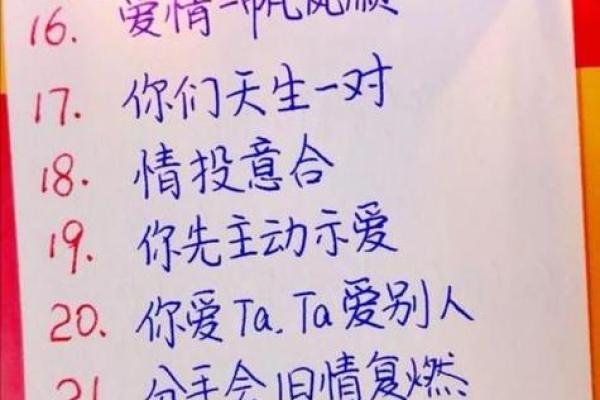 16. 爱情一帆风顺
17. 你们天生一对
18. 情投意合
19. 你先主动示爱
20. 你爱Ta.Ta爱别人
21 分手会旧情复燃